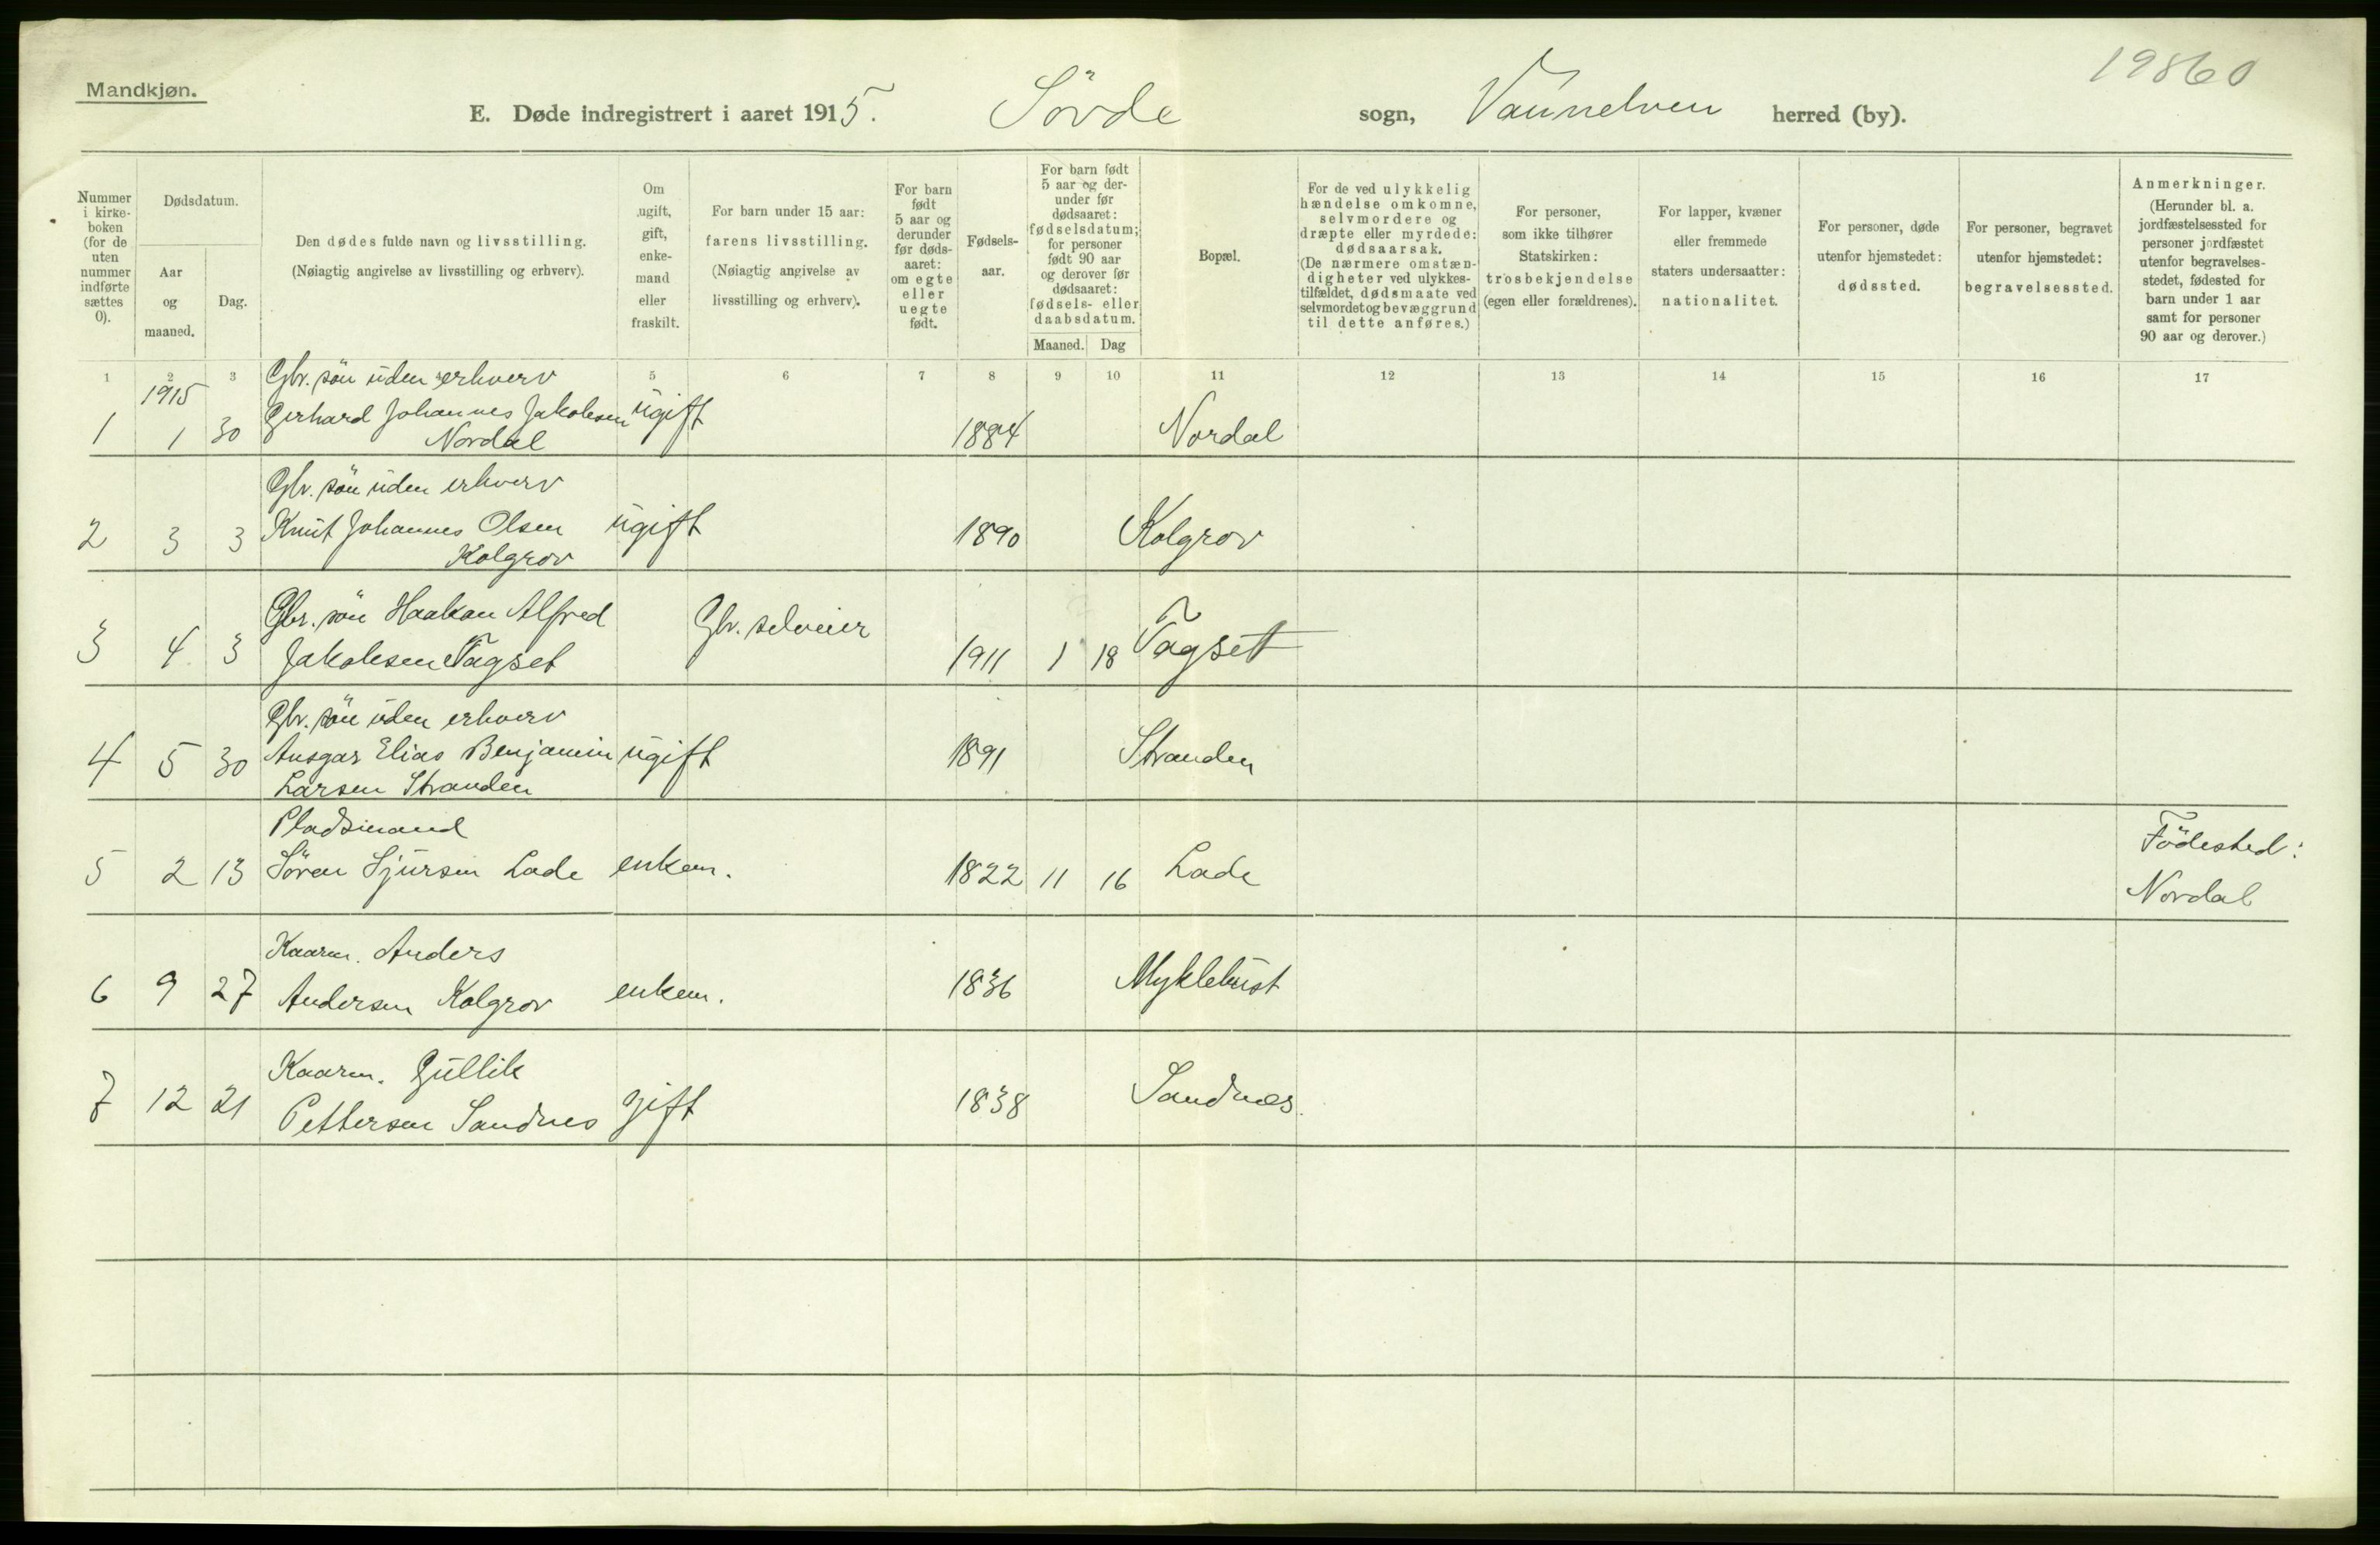 19860
Mandkjøn.
E. Døde indregistrert i aaret 1915. Sövde sogn, Vannelven herred (by).
Nummer i kirke- boken (for de uten nummer indførte sættes 0).
Dødsdatum.
Aar og maaned.
Dag.
Den dødes fulde navn og livsstilling.
(Nøiagtig angivelse av livsstilling og erhverv).
Om ugift, gift, enke- mand eller fraskilt.
For barn under 15 aar: farens livsstilling. (Nøiagtig angivelse av livsstilling og erhverv).
For barn født 5 aar og derunder før døds- aaret: om egte eller uegte født.
Fødsels- aar.
For barn født 5 aar og der- under før dødsaaret: fødselsdatum; for personer født 90 aar og derover før dødsaaret: fødsels- eller daabsdatum.
Maaned. Dag
Bopæl.
For de ved ulykkelig hændelse omkomne, selvmordere og dræpte eller myrdede: dødsaarsak. (De nærmere omstæn- digheter ved ulykkes- tilfældet, dødsmaate ved selvmordet og bevæggrund til dette anføres.)
For personer, som ikke tilhører Statskirken: trosbekjendelse (egen eller forældrenes).
For lapper, kvæner eller fremmede staters undersaatter: nationalitet.
For personer, døde utenfor hjemstedet: dødssted.
For personer, begravet utenfor hjemstedet: begravelsessted.
Anmerkninger. (Herunder bl. a. jordfæstelsessted for personer jordfæstet utenfor begravelses- stedet, fødested for barn under 1 aar samt for personer 90 aar og derover.)
1 2 3 4 5 6 7 8 9 10 11 12 13 14 15 16 17
1915
Gbr. sön uden erhverv
1 1 30 Gerhard Johannes Jakobsen ugift 1884 Nordal
Nordal
Gbr. sön uden erhverv
2 3 3 Knut Johannes Olsen ugift 1890 Kolgrov
Kolgrov
Gbr. sön Haakon Alfred Gbr. selveier
3 4 3 Jakobsen Fagset 1911 1 18 Fagset
Gbr. sön uden erhverv
4 5 30 Ansgar Elias Benjamin ugift 1891 Stranden
Larsen Stranden
Pladsmand
5 2 13 Sören Sjursen Lade enkem. 1822 11 16 Lade Födested:
Nordal
Kaarm. Anders
6 9 27 Andersen Kolgrov enkem. 1836 Myklebust
Kaarm. Gullik
7 12 21 Pettersen Sandnes gift 1838 Sandnes